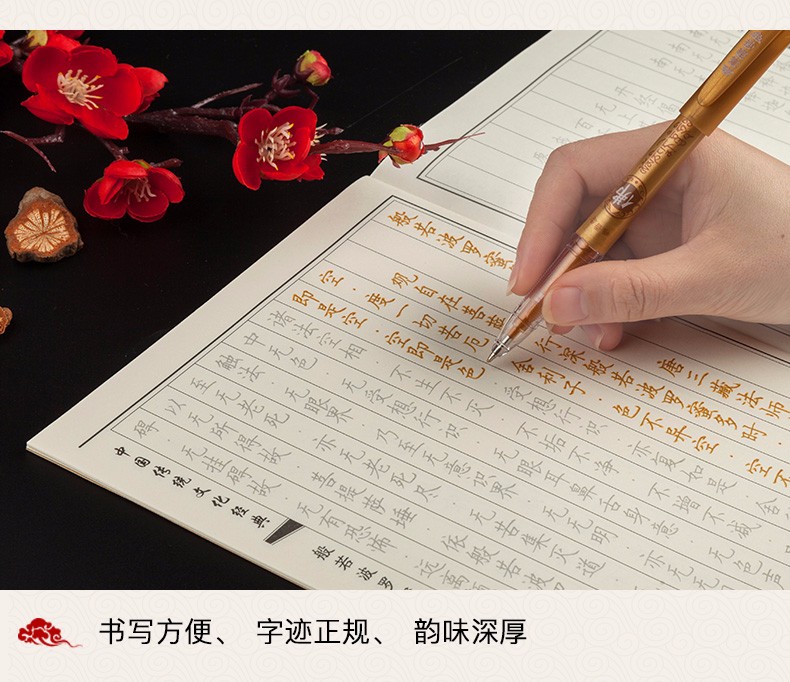 般若波罗蜜
唐三藏法师
观自在菩萨 行深般若波罗蜜多时.
空.度一切苦厄 舍利子.色不异空.空不
即是空.空即是色 受想行识.亦复如是.舍
诸法空相.不生不灭.不垢不净.不增不减
中无色.无受想行识.无眼耳鼻舌身意.无色声
触法.无眼界.乃至无意识界.无无明.亦无无
至无老死.亦无老死尽.无苦集灭道
以无所得故.菩提萨埵.依般若波罗
碍.无挂碍故.无有恐怖.远离
中国传统文化经典
般若波罗
佛
书写方便、 字迹正规、 韵味深厚